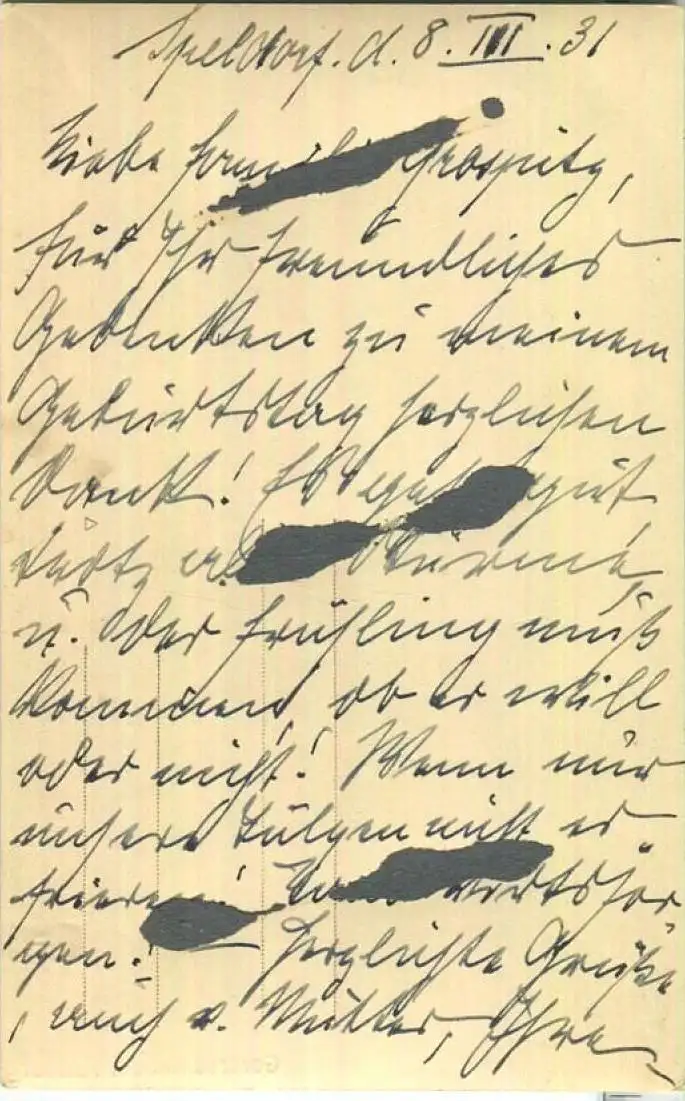 Speldorf. d. 8. III. 31
Liebe Familie Grospitz,
für Ihr freundliches
Gedenken zu meinem
Geburtstag herzlichen
Dank! Es geht gut
trotz Stürme,
u. der Frühling muß
kommen, ob er will
oder nicht! Wenn nur
unsere Tulpen nicht er
frieren! wirtssor
gen! Herzlichste Grüße
, auch v. Mutter, Ihre